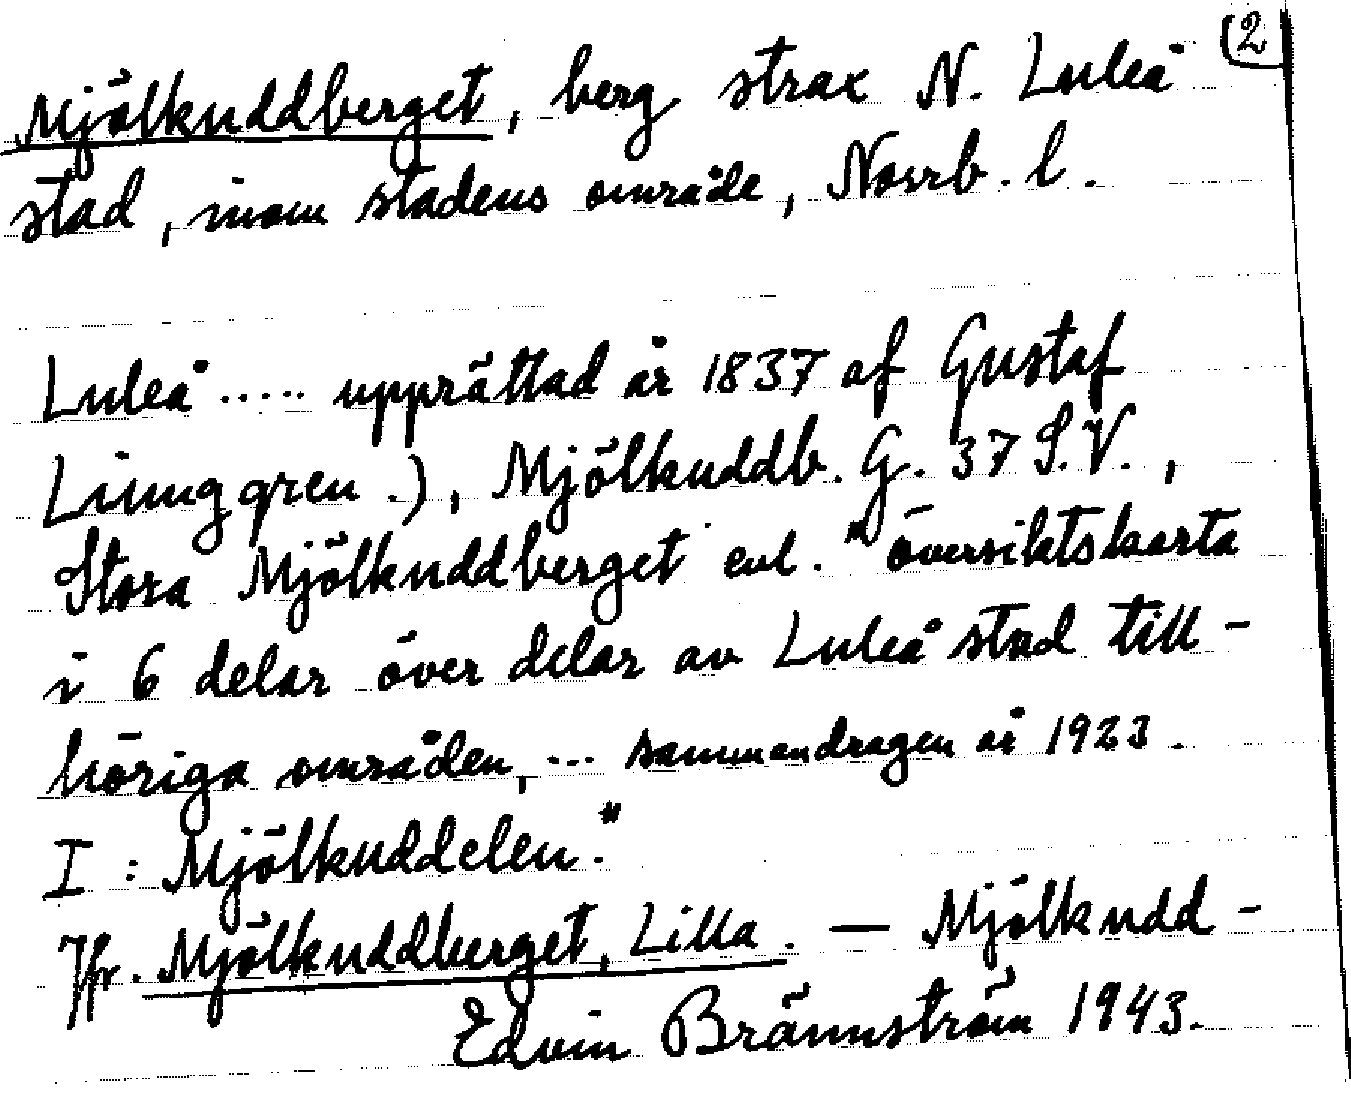 (2
Mjölkuddberget, berg strax N. Luleå
stad, inom stadens område, Norrb. l.
Luleå ..... upprättad år 1837 af Gustaf
Ljunggren.), Mjölkuddb. G. 37 S.V.,
Stora Mjölkuddberget enl. "översiktskarta
i 6 delar över delar av Luleå stad till-
höriga områden, ... sammandragen år 1923.
I : Mjölkuddelen."
Jfr. Mjölkuddberget, Lilla. — Mjölkudd-
Edvin Brännström 1943.